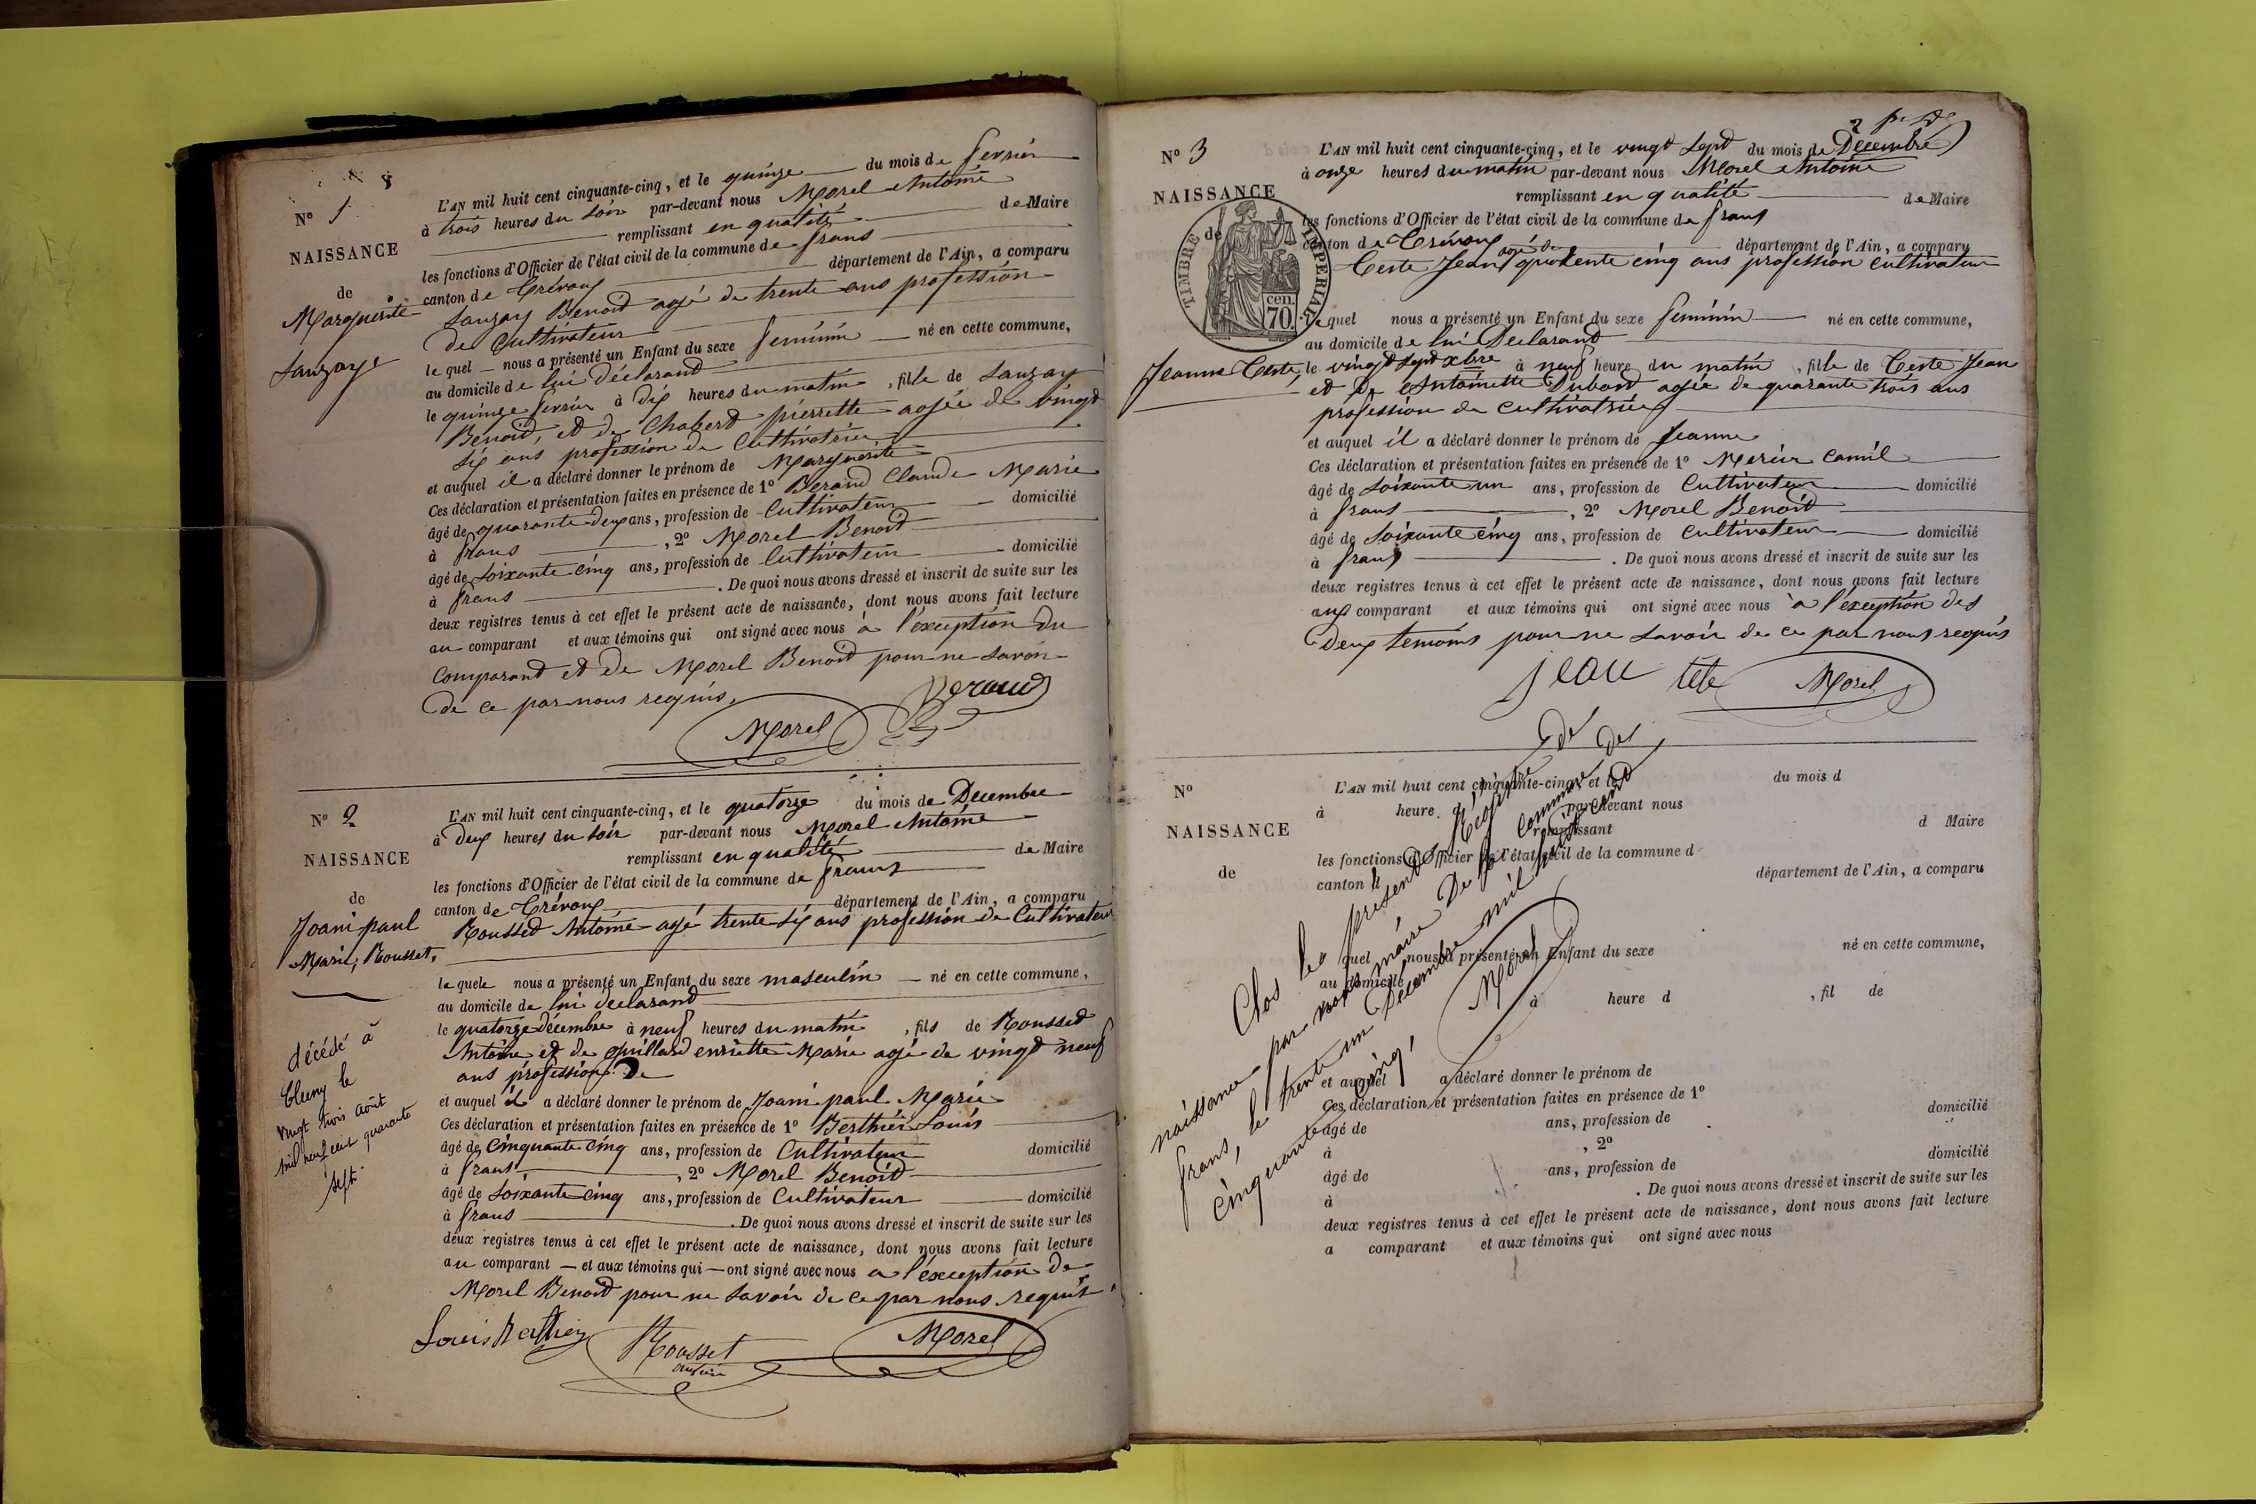 N° 1
NAISSANCE
de
Marguerite
Sauzay
L'AN mil huit cent cinquante-cinq, et le quinze du mois de fevrier
à trois heures du soir par-devant nous Morel Antoine
remplissant en qualité de Maire
les fonctions d'Officier de l'état civil de la commune de frans
canton de Trévoux département de l'Ain, a comparu
Sauzay Benoit agé de trente ans profession
de Cultivateur
le quel nous a présenté un Enfant du sexe feminin né en cette commune,
au domicile de lui déclarand
le quinze fevrier à dix heures du matin, fille de Sauzay
Benoit, et de Chabert pierrette agée de vingt
six ans profession de Cultivatrice
et auquel il a déclaré donner le prénom de Marguerite
Ces déclaration et présentation faites en présence de 1° Beraud Claude Marie
âgé de quarante deux ans, profession de Cultivateur domicilié
à frans, 2° Morel Benoit
âgé de soixante cinq ans, profession de Cultivateur domicilié
à frans. De quoi nous avons dressé et inscrit de suite sur les
deux registres tenus à cet effet le présent acte de naissance, dont nous avons fait lecture
au comparant et aux témoins qui ont signé avec nous à l'exception du
Comparand et de Morel Benoit pour ne savoir
de ce par nous requis.
Morel Beraud
N° 2
NAISSANCE
de
Joani paul
Marie, Rousset,
décédé à
Cluny le
vingt trois août
mil neuf cent quarante
sept.
L'AN mil huit cent cinquante-cinq, et le quatorze du mois de Decembre
à Deux heures du soir par-devant nous Morel Antoine
remplissant en qualité de Maire
les fonctions d'Officier de l'état civil de la commune de frans
canton de Trévoux département de l'Ain, a comparu
Rousset Antoine agé trente six ans profession de Cultivateur
le quele nous a présenté un Enfant du sexe masculin né en cette commune,
au domicile de lui declarand
le quatorze décembre à neuf heures du matin, fils de Rousset
Antoine et de Guillard enriette Marie agé de vingt neuf
ans profession De
et auquel il a déclaré donner le prénom de Joani paul Marie
Ces déclaration et présentation faites en présence de 1° Berthier Louis
âgé de Cinquante Cinq ans, profession de Cultivateur domicilié
à frans, 2° Morel Benoit
âgé de soixante cinq ans, profession de Cultivateur domicilié
à frans. De quoi nous avons dressé et inscrit de suite sur les
deux registres tenus à cet effet le présent acte de naissance, dont nous avons fait lecture
au comparant et aux témoins qui ont signé avec nous a l'exception de
Morel Benoit pour ne savoir de ce par nous requis.
Louis Berthier Rousset Morel
antoine
2
N° 3
NAISSANCE
de
Jeanne Teste,
TIMBRE IMPERIAL
70 cen.
L'AN mil huit cent cinquante-cinq, et le vingt sept du mois de Decembre
à onze heures du matin par-devant nous Morel Antoine
remplissant en qualité de Maire
les fonctions d'Officier de l'état civil de la commune de frans
canton de Trévoux département de l'Ain, a comparu
agé de
Teste Jean quarente cinq ans profession cultivateur
le quel nous a présenté un Enfant du sexe feminin né en cette commune,
au domicile de lui Declarand
le vingt sept xbre à neuf heure du matin, fille de Teste Jean
et de Antoinette Dubost agée de quarante trois ans
profession de cultivatrice
et auquel il a déclaré donner le prénom de Jeanne
Ces déclaration et présentation faites en présence de 1° Merier Camil
âgé de soixante un ans, profession de Cultivateur domicilié
à frans, 2° Morel Benoit
âgé de soixante cinq ans, profession de Cultivateur domicilié
à frans. De quoi nous avons dressé et inscrit de suite sur les
deux registres tenus à cet effet le présent acte de naissance, dont nous avons fait lecture
aux comparant et aux témoins qui ont signé avec nous à l'exception des
Deux temoins pour ne savoir de ce par nous requis
jean tete Morel
N°
NAISSANCE
de
L'AN mil huit cent cinquante-cinq, et le du mois d
à heure d par-devant nous
remplissant d Maire
les fonctions d'Officier de l'état civil de la commune d
canton d département de l'Ain, a comparu
quel nous a présenté un Enfant du sexe né en cette commune,
au domicile
à heure d, fil de
et auquel a déclaré donner le prénom de
Ces déclaration et présentation faites en présence de 1°
âgé de ans, profession de domicilié
à, 2°
âgé de ans, profession de domicilié
à. De quoi nous avons dressé et inscrit de suite sur les
deux registres tenus à cet effet le présent acte de naissance, dont nous avons fait lecture
a comparant et aux témoins qui ont signé avec nous
Clos les présent Régistre de
naissance par nous maire De la commune de
frans, le trente un Décembre mil huit cent
cinquante cinq,
Morel